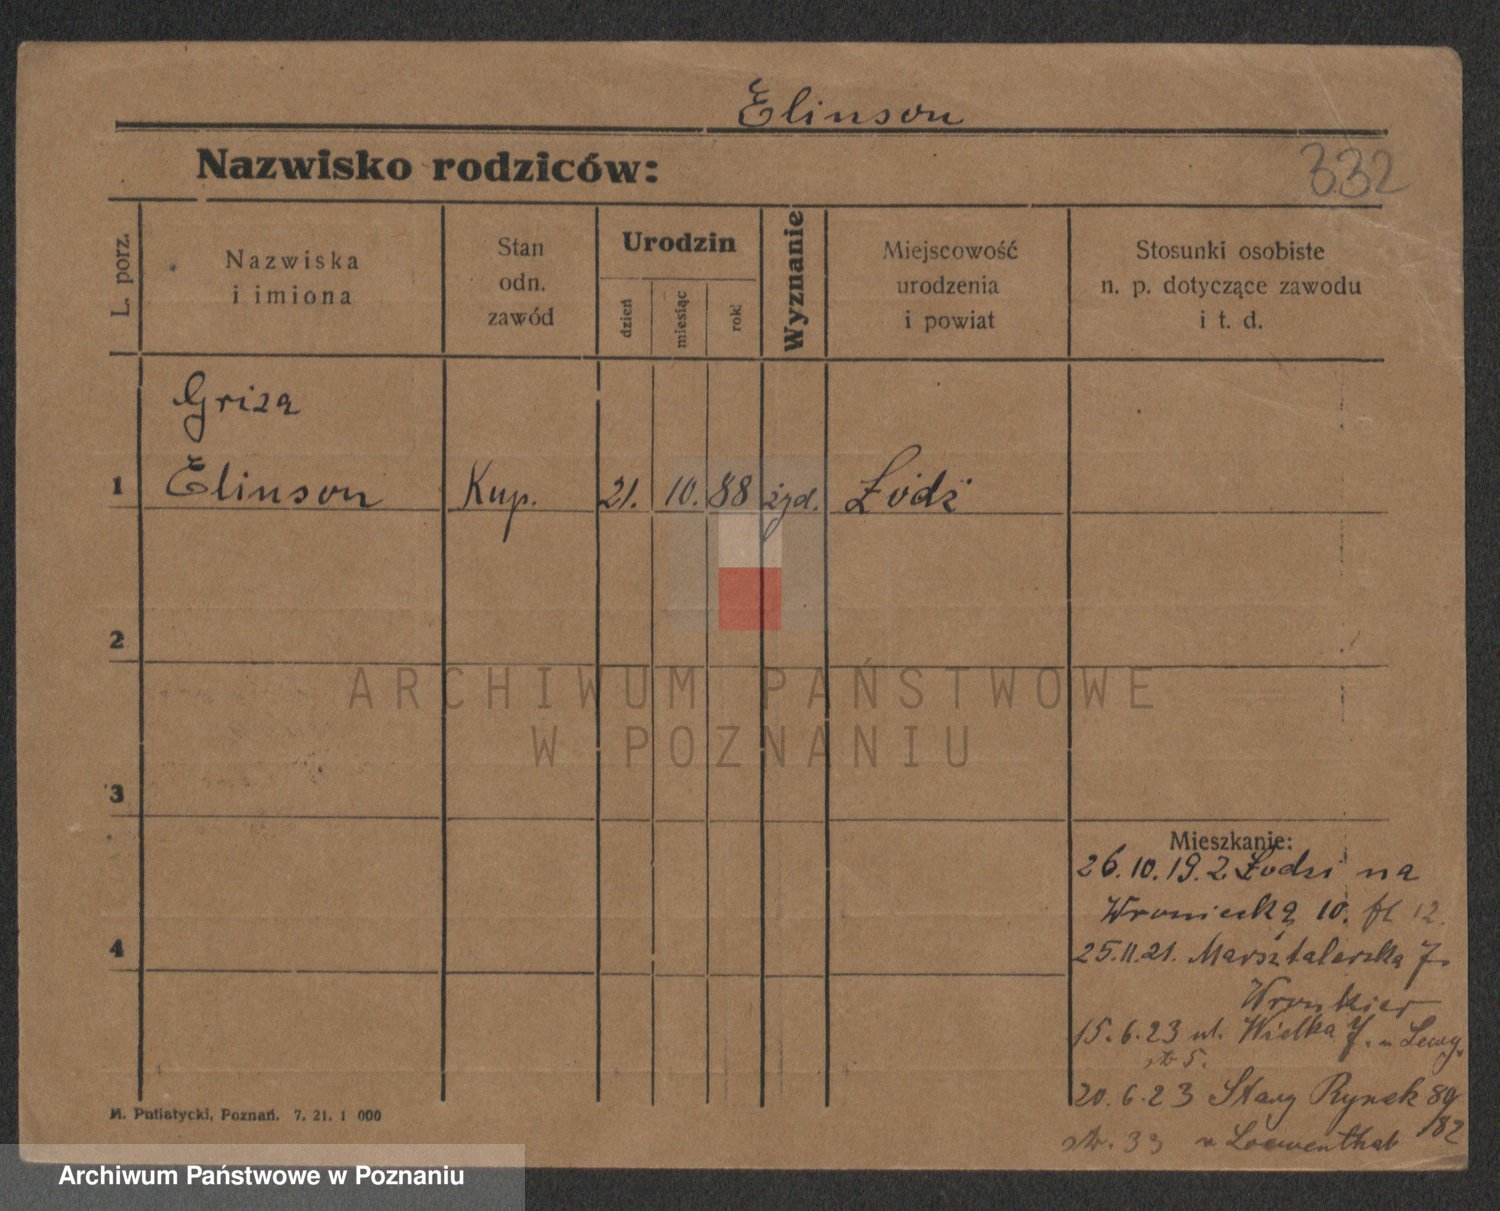 Elinson
Nazwisko rodziców:
332
L. porz.
Nazwiska
i imiona
Stan
odn.
zawód
Urodzin
dzień
miesiąc
rok
Wyznanie
Miejscowość
urodzenia
i powiat
Stosunki osobiste
n. p. dotyczące zawodu
i t. d.
Griza
1 Elinson Kup. 21. 10. 88 żyd. Łódź
2
ARCHIWUM PAŃSTWOWE
W POZNANIU
3
Mieszkanie:
26.10.19. z Łodzi na
Wroniecką 10. 12.
4
25.11.21. Marsztalerska 7.
15.6.23 ul. Wielka 7. u Lewy.
str 5.
20.6.23 Stary Rynek 89
/82
str. 33 u Loewenthal
M. Putiatycki, Poznań. 7. 21. 1 000
Archiwum Państwowe w Poznaniu